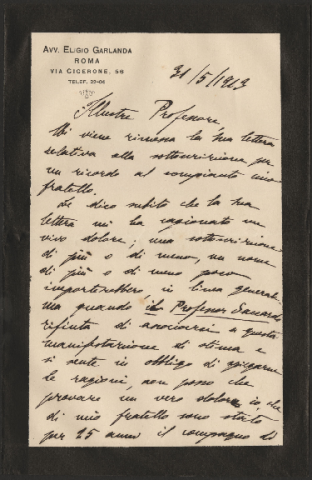 AVV. ELIGIO GARLANDA
ROMA
VIA CICERONE, 56
TELEF. 22-06
31/5/1913
Illustre Professore
Mi viene rimessa la sua lettera
relativa alla sottoscrizione per
un ricordo al compianto mio
fratello.
Le dico subito che la sua
lettera mi ha cagionato un
vivo dolore; una sottoscrizione
di più o di meno, un nome
di più o di meno poco
importerebbero in linea generale
ma quando il Professor
rifiuta di associarsi a questa
manifestazione di stima e
si sente in obbligo di spiegarne
le ragioni, non posso che
provare un vero dolore io, che
di mio fratello sono stato
per 25 anni il compagno di